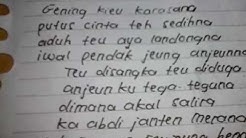 Gening kieu karasana
putus cinta teh sedihna
aduh teu aya landongna
iwal pendak jeung anjeunna
Teu disangka teu diduga
anjeun ku tega-teguna
dimana akal salira
ka abdi janten merana